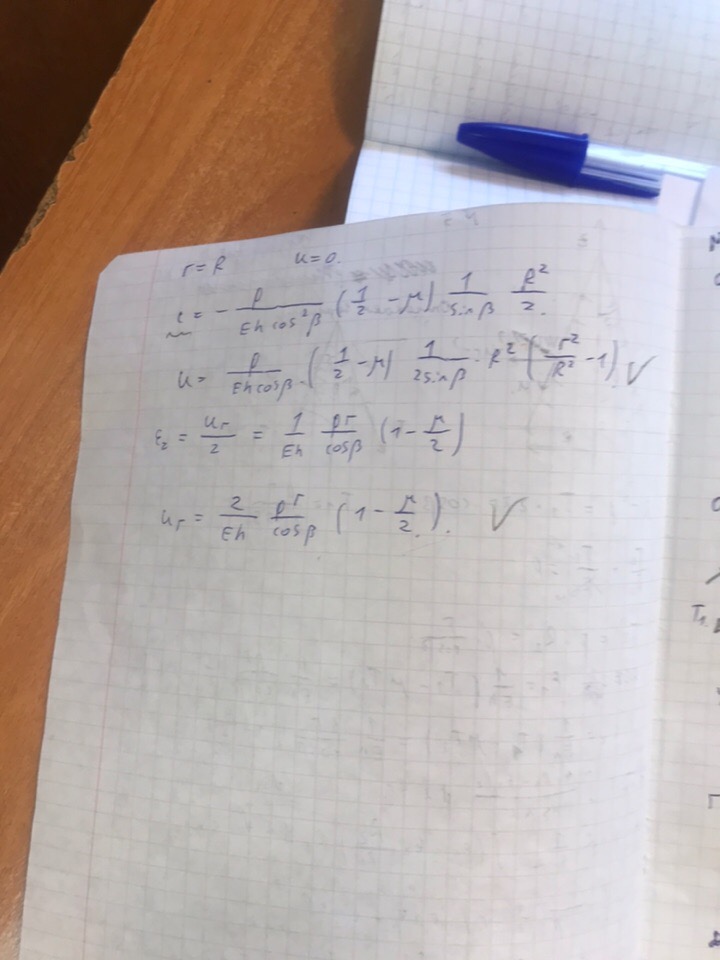 r = R u = 0.
c = - p/(Eh cos²β) (1/2 - μ) 1/(sin β) R²/2.
u = p/(Eh cosβ) · (1/2 - μ) 1/(2 sin β) · R² (r²/R² - 1) ✓
ε₂ = u_r/2 = 1/(Eh) pr/(cosβ) (1 - μ/2)
u_r = 2/(Eh) pr/(cosβ) (1 - μ/2). ✓
T₁.